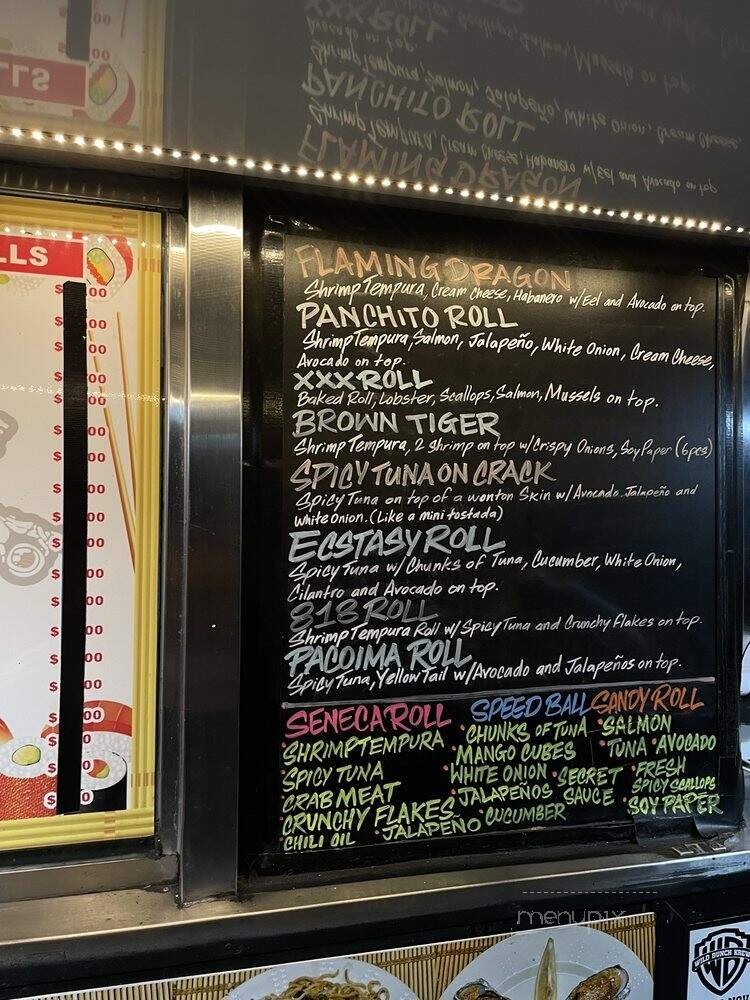 LLS
FLAMING DRAGON
Shrimp Tempura, Cream Cheese, Habanero w/Eel and Avocado on top.
PANCHITO ROLL
Shrimp Tempura, Salmon, Jalapeño, White Onion, Cream Cheese,
Avocado on top.
XXX ROLL
Baked Roll, Lobster, Scallops, Salmon, Mussels on top.
BROWN TIGER
Shrimp Tempura, 2 shrimp on top w/Crispy Onions, Soy Paper (6pcs)
SPICY TUNA ON CRACK
Spicy Tuna on top of a wonton Skin w/Avocado Jalapeño and
white onion. (Like a mini tostada)
ECSTASY ROLL
Spicy Tuna w/ Chunks of Tuna, Cucumber, White Onion,
Cilantro and Avocado on top.
818 ROLL
Shrimp Tempura Roll w/ Spicy Tuna and Crunchy Flakes on top.
PACOIMA ROLL
Spicy Tuna, Yellow Tail w/Avocado and Jalapeños on top.
SENECA ROLL
SHRIMP TEMPURA
SPICY TUNA
CRAB MEAT
CRUNCHY FLAKES
CHILI OIL • JALAPEÑO
SPEED BALL
• CHUNKS OF TUNA
• MANGO CUBES
• WHITE ONION • SECRET SAUCE
• JALAPEÑOS
• CUCUMBER
SANDY ROLL
• SALMON
• TUNA • AVOCADO
• FRESH
SPICY SCALLOPS
• SOY PAPER
menupix
WB
WILD BUNCH KREW